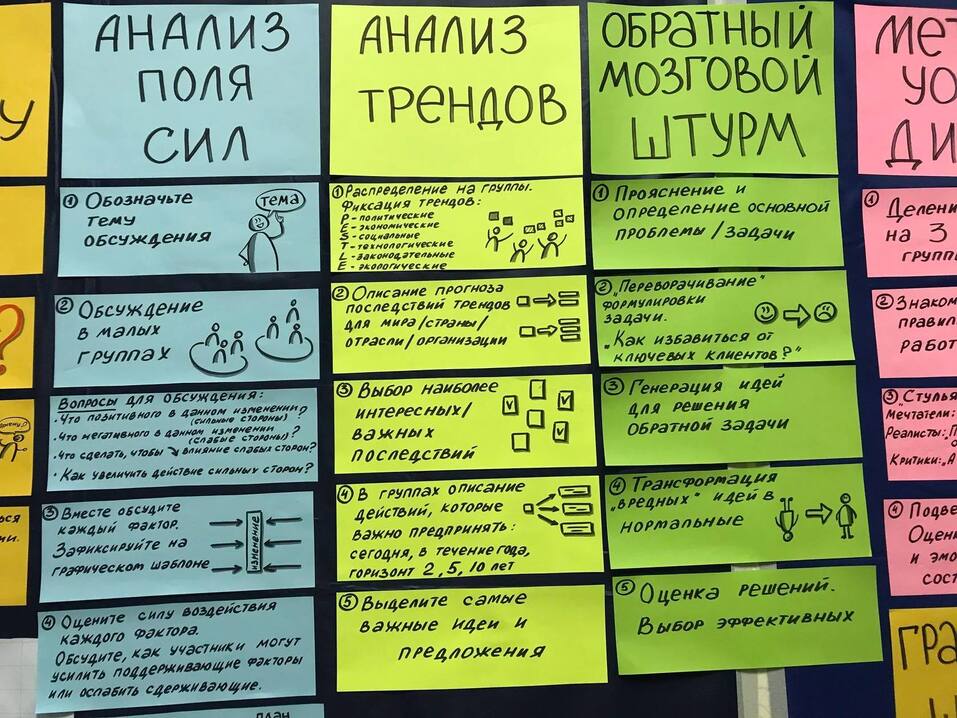 У
?
АНАЛИЗ
ПОЛЯ
СИЛ
① Обозначьте
тему
обсуждения
тема
② Обсуждение
в малых
группах
Вопросы для обсуждения:
• Что позитивного в данном изменении?
(сильные стороны)
• Что негативного в данном изменении?
(слабые стороны)
• Что сделать, чтобы ↘ влияние слабых сторон?
• Как увеличить действие сильных сторон?
③ Вместе обсудите
каждый фактор.
Зафиксируйте на
графическом шаблоне
изменение
④ Оцените силу воздействия
каждого фактора.
Обсудите, как участники могут
усилить поддерживающие факторы
или ослабить сдерживающие.
план
АНАЛИЗ
ТРЕНДОВ
① Распределение на группы.
Фиксация трендов:
P - политические
E - экономические
S - социальные
T - технологические
L - законодательные
E - экологические
② Описание прогноза
последствий трендов
для мира/страны/
отрасли/организации
③ Выбор наиболее
интересных/
важных
последствий
④ В группах описание
действий, которые
важно предпринять:
сегодня, в течение года,
горизонт 2, 5, 10 лет
⑤ Выделите самые
важные идеи и
предложения
ОБРАТНЫЙ
МОЗГОВОЙ
ШТУРМ
① Прояснение и
определение основной
проблемы/задачи
② „Переворачивание"
формулировки
задачи.
„Как избавиться от
ключевых клиентов?"
③ Генерация идей
для решения
обратной задачи
④ Трансформация
„вредных" идей в
нормальные
⑤ Оценка решений.
Выбор эффективных
МЕТ
УО
ДИ
① Делени
на 3
групп
② Знаком
правил
работ
③ „Стулья
Мечтатели:
Реалисты: „П
Критики: „А
④ Подве
Оцени
и эмо
сост
ГРА